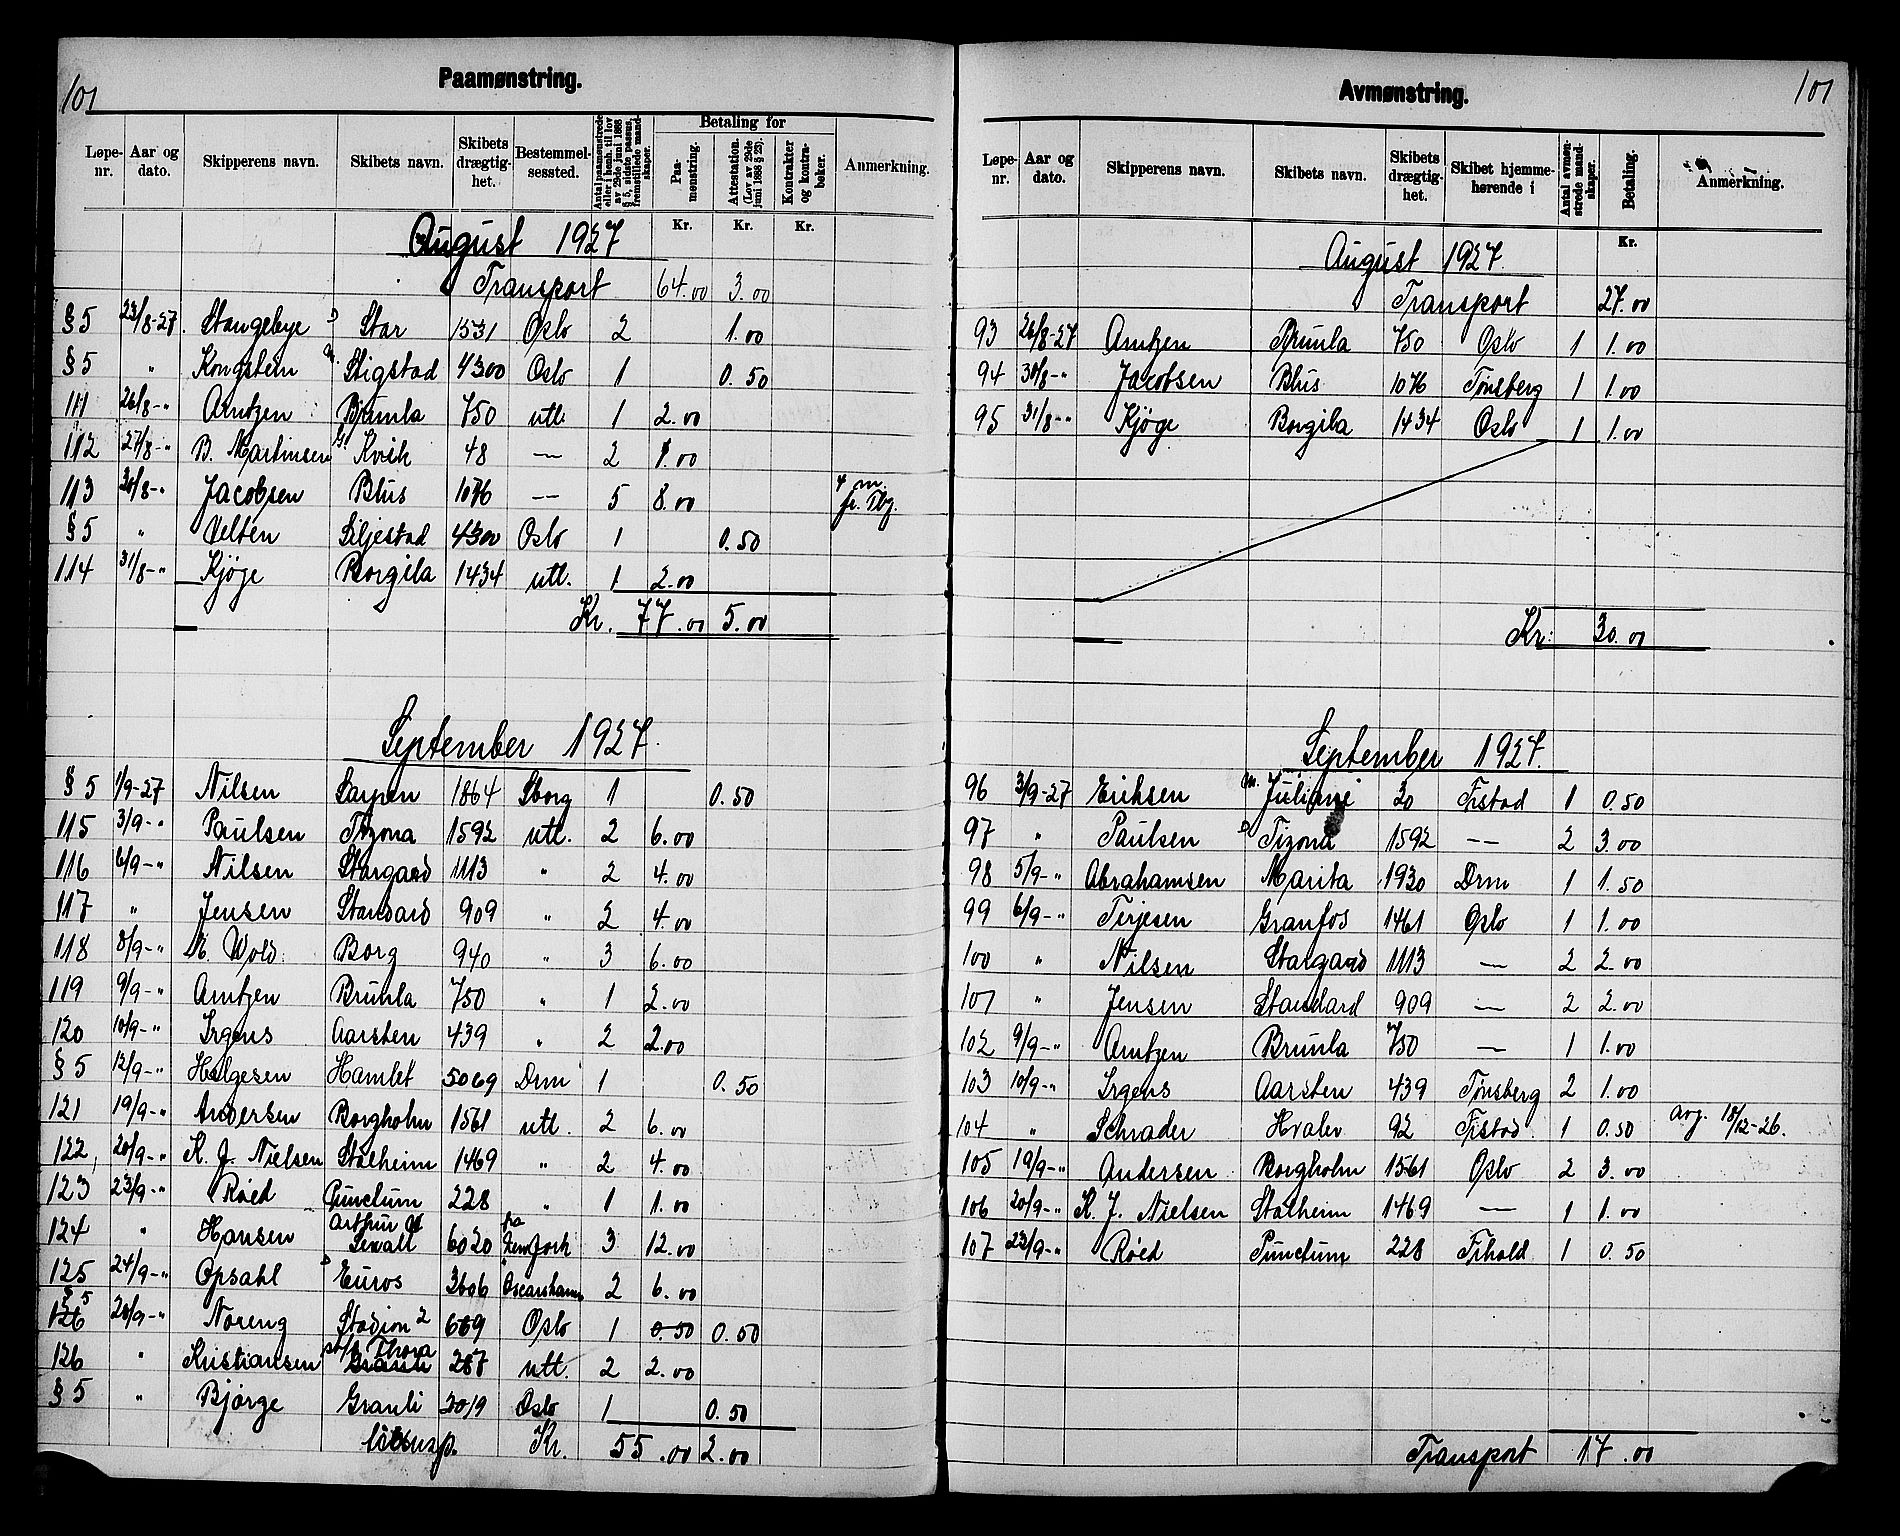 101
Paamønstring.
Løpe-nr. Aar og dato. Skipperens navn. Skibets navn. Skibets drægtig-het. Bestemmel-sessted. Antal paamønstrede eller i henh. til lov av 29de juni 1888 § 5, sidste passus, fremstillede mand-skaper. Betaling for Paa-mønstring. Attestation. (Lov av 29de juni 1888 § 23). Kontrakter og kontra-bøker. Anmerkning.
Kr. Kr. Kr.
August 1927
Transport 64.00 3.00
§ 5 23/8-27. Stangebye D Star 1531 Oslo 2 1.00
§ 5 " Kongstein m. Stigstad 4300 Oslo 1 0.50
111 26/8-" Arntzen Brumla 750 utl. 1 2.00
112 27/8-" B. Martinsen Kvik 48 — 2 1.00
113 30/8-" Jacobsen Blus 1076 -- 5 8.00 4 m. fr. Tbg.
§ 5 " Velten Siljestad 4300 Oslo 1 0.50
114 31/8-" Kjøge Borgila 1434 utl. 1 2.00
Kr. 77.00 5.00
September 1927.
§ 5 1/9-27 Nilsen Sarpen 1864 Sborg 1 0.50
115 3/9-" Paulsen Tizona 1592 utl. 2 6.00
116 6/9-" Nilsen Stargard 1113 " 2 4.00
117 " Jensen Standard 909 " 2 4.00
118 8/9-" M. Wold Borg 940 " 3 6.00
119 9/9-" Arntzen Brunla 750 " 1 2.00
120 10/9-" Irgens Aarsten 439 " 2 2.00
§ 5 12/9-" Helgesen Hamlet 5069 Drm 1 0.50
121 19/9-" Andersen Borgholm 1561 utl. 2 6.00
122 20/9-" K. J. Nielsen Stalheim 1469 " 2 4.00
123 23/9-" Røed Punctum 228 " 1 1.00
124 " Hansen Arthur Sewall 6020 pa New York 3 12.00
125 24/9-" Opsahl D Euros 3606 Oscarshamn 2 6.00
§ 5 126 28/9-" Noreng Stadion 2 669 Oslo 1 0.50 0.50
126 " Kristiansen Thora 287 utl. 2 2.00
§ 5 " Bjørge Granli 2019 Oslo 1 0.50
Kr. 55.00 2.00
101
Avmønstring.
Løpe-nr. Aar og dato. Skipperens navn. Skibets navn. Skibets drægtig-het. Skibet hjemme-hørende i Antal avmøn-strede mand-skaper. Betaling. Anmerkning.
Kr.
August 1927.
Transport 27.00
93 26/8-27 Arntzen Brumla 750 Oslo 1 1.00
94 30/8-" Jacobsen Blus 1076 Tønsberg 1 1.00
95 31/8-" Kjøge Borgila 1434 Oslo 1 1.00
Kr: 30.00
September 1927.
96 3/9-27 Eriksen m. Juliane 20 Frstad 1 0.50
97 " Paulsen D Tizona 1592 -- 2 3.00
98 5/9-" Abrahamsen Marita 1930 Drm 1 1.50
99 6/9-" Terjesen Granfos 1461 Oslo 1 1.00
100 " Nilsen Stargard 1113 — 2 2.00
101 " Jensen Standard 909 — 2 2.00
102 9/9-" Arntzen Brunla 750 — 1 1.00
103 10/9-" Irgens Aarsten 439 Tønsberg 2 1.00
104 " Schrader Hvaler 92 Frstad. 1 0.50 avg. 18/12-26.
105 19/9-" Andersen Borgholm 1561 Oslo 2 3.00
106 20/9-" K. J. Nielsen Stalheim 1469 — 1 1.00
107 23/9-" Røed Punctum 228 Frhald 1 0.50
Transport 17.00